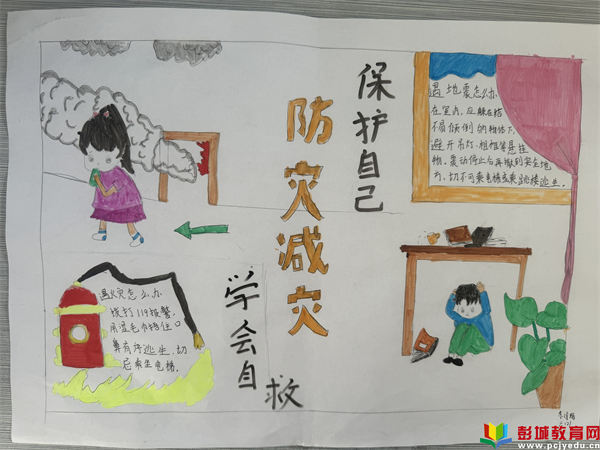 保护自己
防灾减灾
学会自救
遇地震怎么办
在室内,应躲在坊
不易倾倒的物体下,
避开吊灯、相框等悬挂
物。震动停止后再撤到安全地
方,切不可乘电梯或乘跳楼逃生。
遇火灾怎么办
拨打119报警,
用湿毛巾捂住口
鼻有序逃生,切
忌乘坐电梯。
彭城教育网
www.pcjyedu.cn